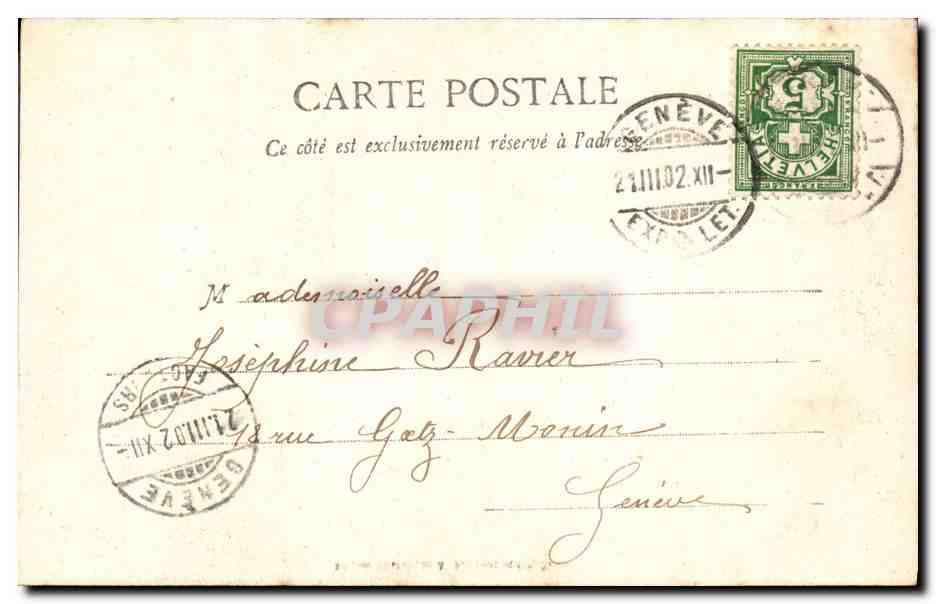 CARTE POSTALE
Ce côté est exclusivement réservé à l'adresse
5
HELVETIA
FRANCO
GENÈVE
21.III.02.XII-
EXP. LET.
Mademoiselle
CPAPHIL
Joséphine Ravier
18 rue Gœtz-Monin
Genève
21.III.02.XII-
GENÈVE